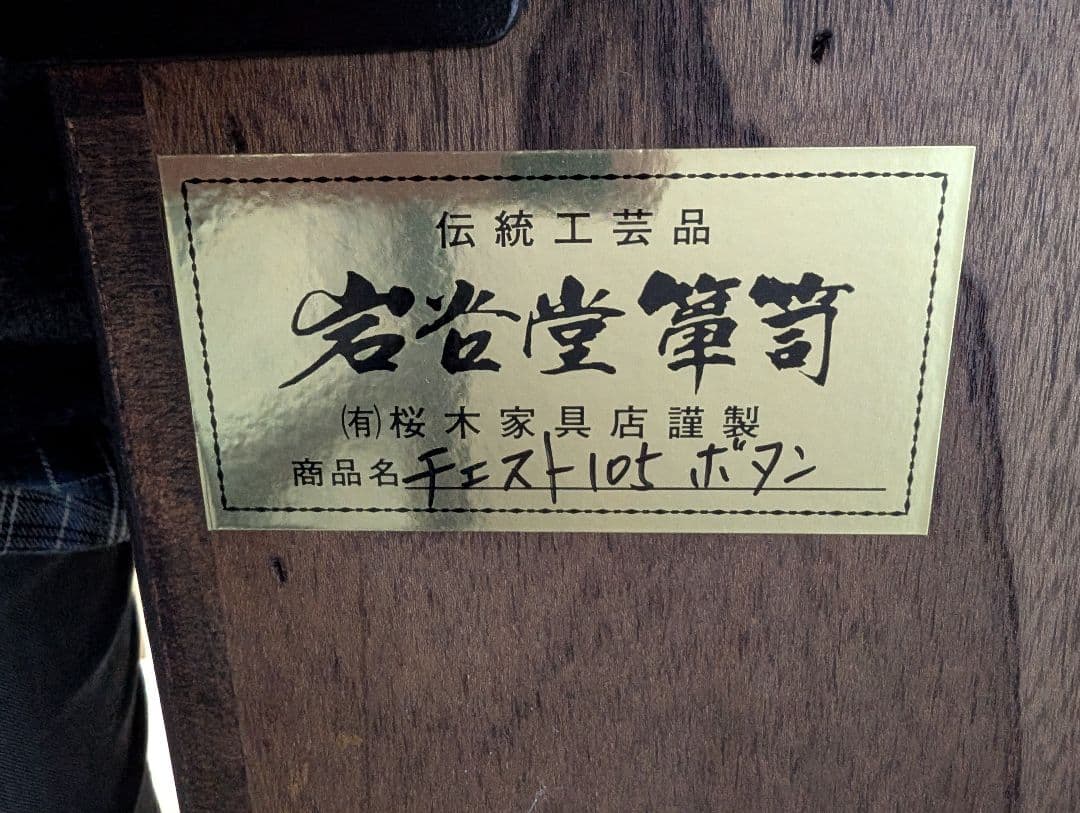 伝統工芸品
岩谷堂箪笥
㈲桜木家具店謹製
商品名 チェスト105 ボタン